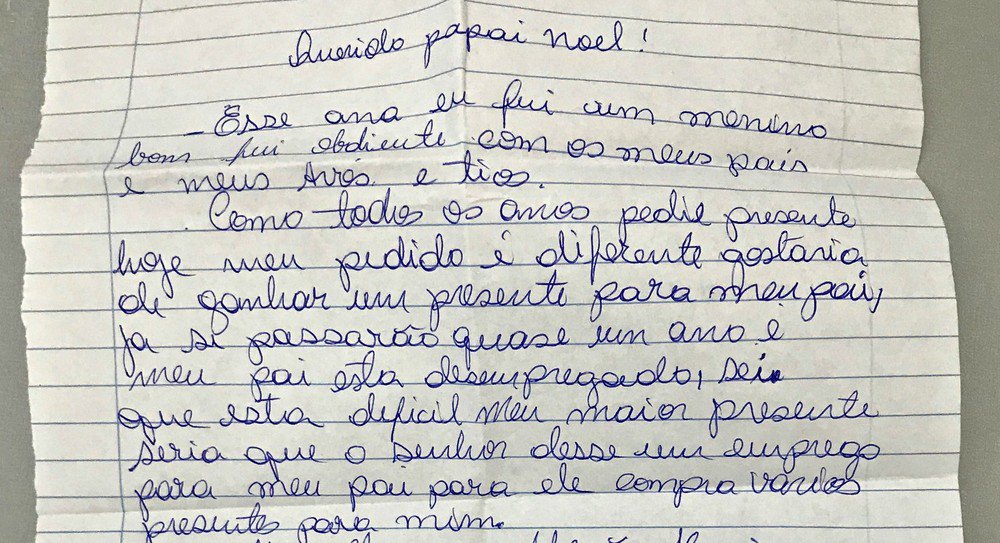 Querido papai noel!
- Esse ano eu fui um menino
bom fui obdiente com os meus pais
e meus Avós e tios.
Como todos os anos pedie presente
hoje meu pedido é diferente gostaria
de ganhar um presente para meu pai,
ja si passarão quase um ano e
meu pai esta desempregado, sei
que esta deficil meu maior presente
seria que o senhor desse um emprego
para meu pai para ele compra varios
presentes para mim.